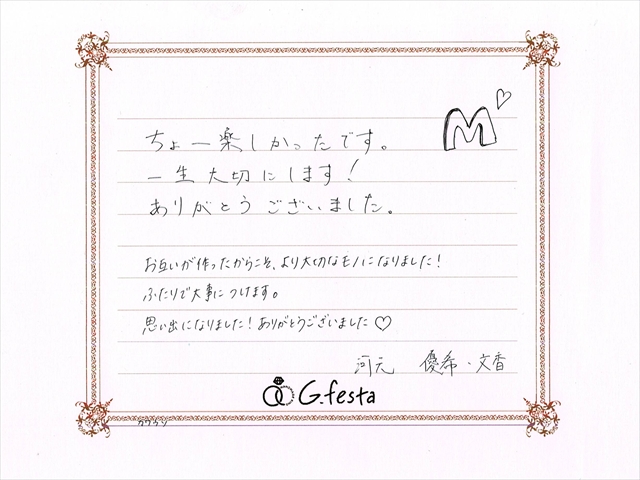 M
ちょー楽しかったです。
一生大切にします!
ありがとうございました。
お互いが作ったからこそ、より大切なモノになりました!
ふたりで大事につけます。
思い出になりました!ありがとうございました♡
河元 優希・文香
G.festa